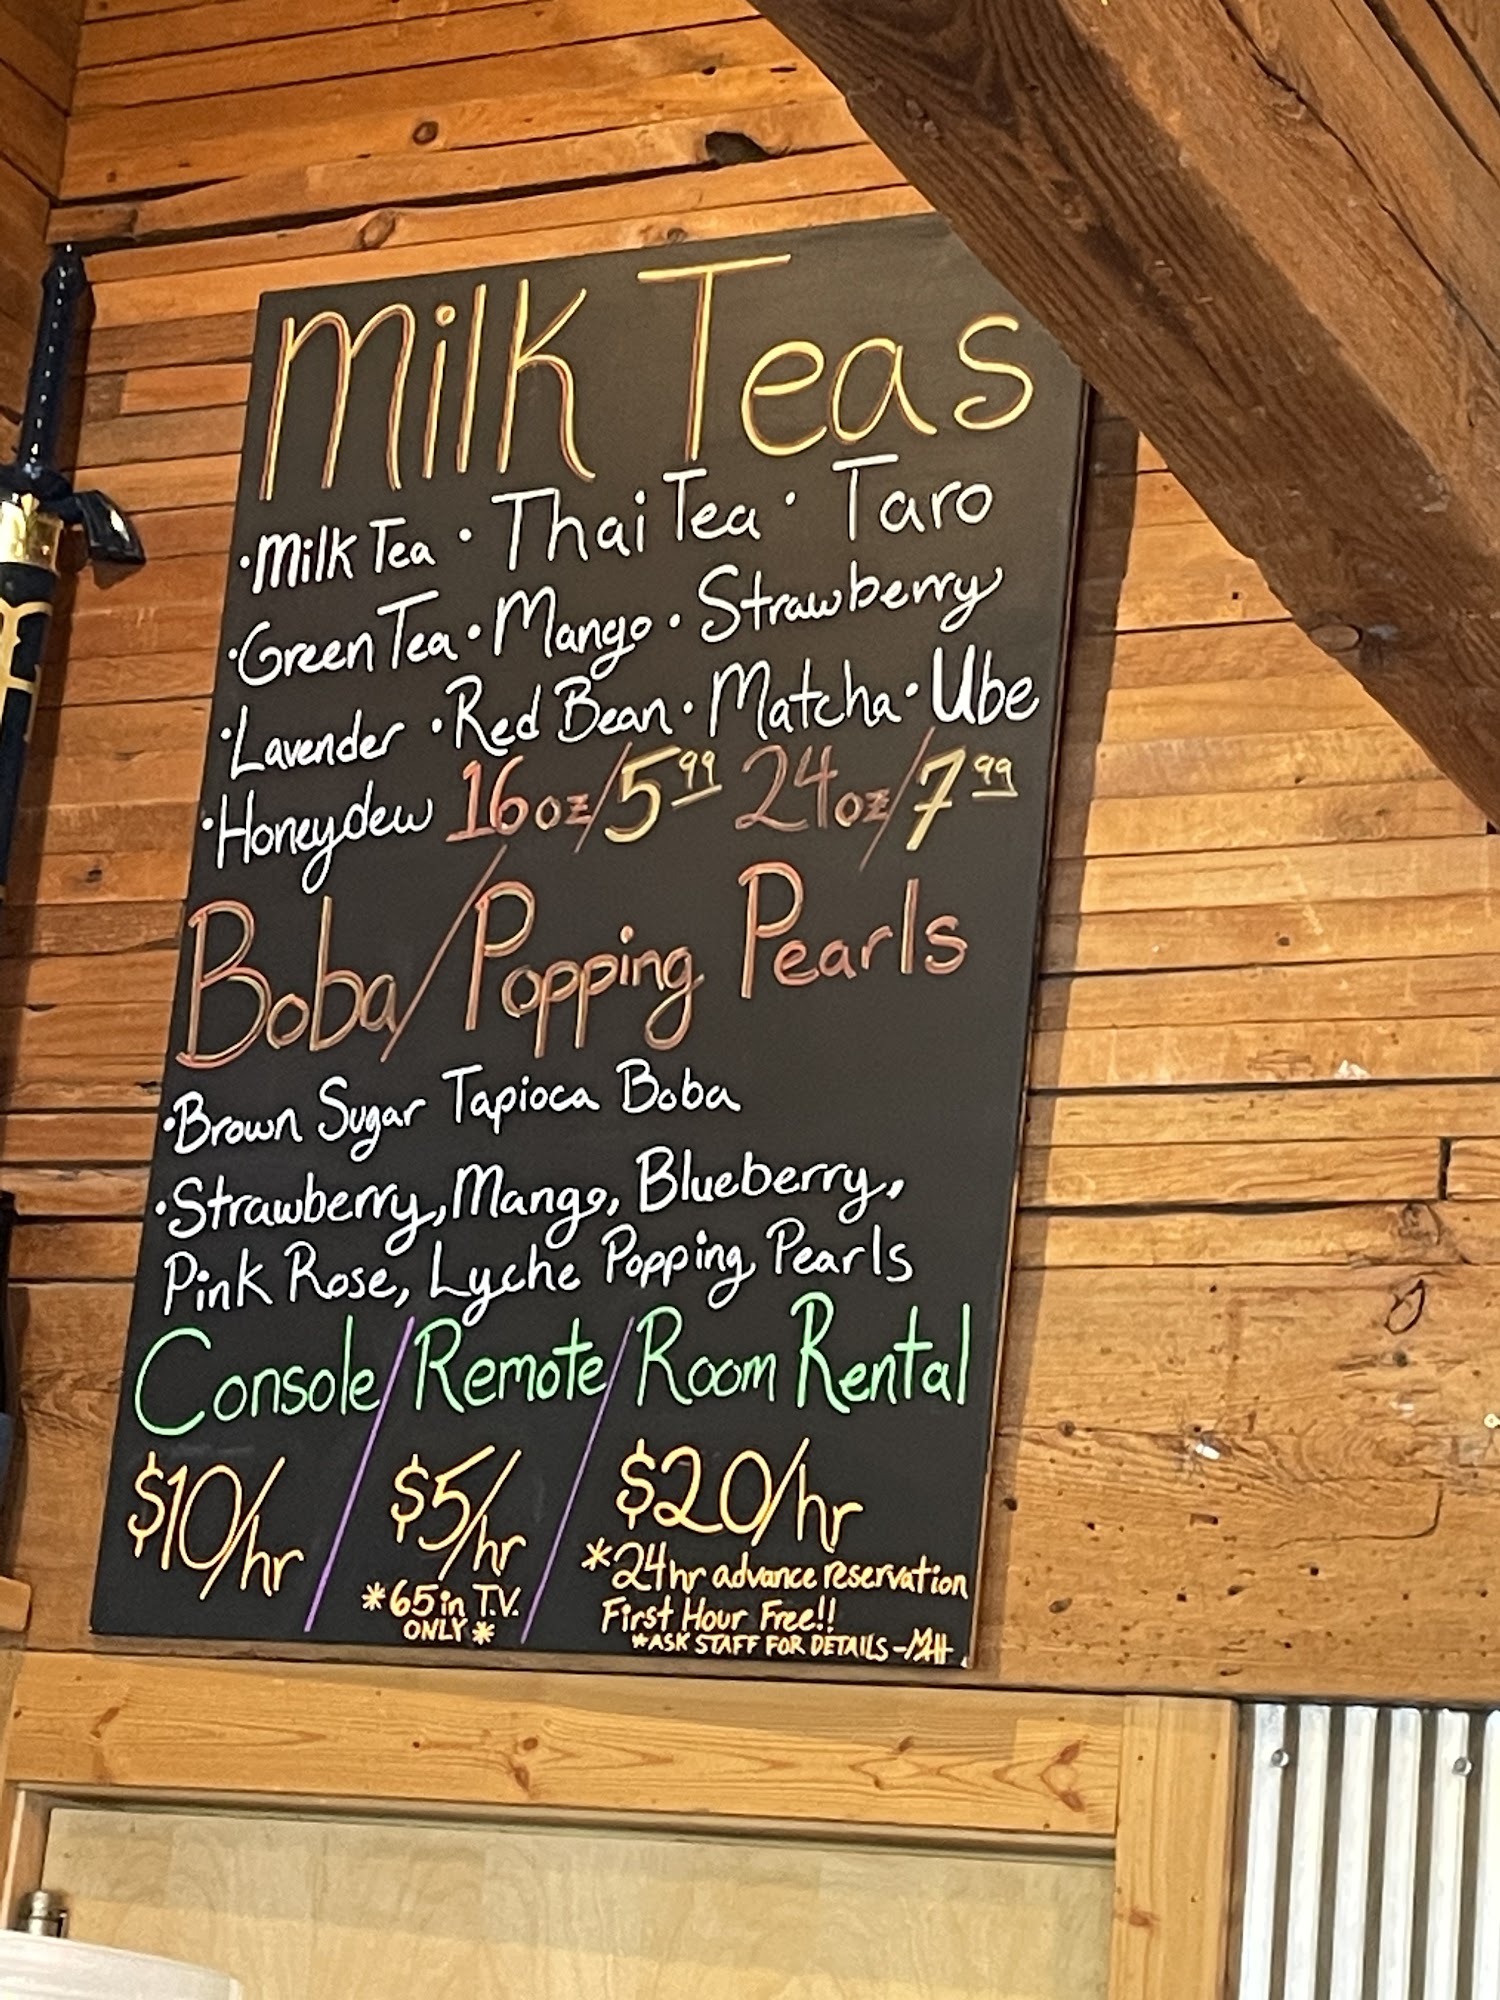 Milk Teas
•Milk Tea • Thai Tea • Taro
•Green Tea • Mango • Strawberry
•Lavender • Red Bean • Matcha • Ube
•Honeydew 16oz/5.99 24oz/7.99
Boba/Popping Pearls
•Brown Sugar Tapioca Boba
•Strawberry, Mango, Blueberry,
Pink Rose, Lyche Popping Pearls
Console/Remote/Room Rental
$10/hr $5/hr $20/hr
*65in T.V.
ONLY*
*24hr advance reservation
First Hour Free!!
*ASK STAFF FOR DETAILS -MH